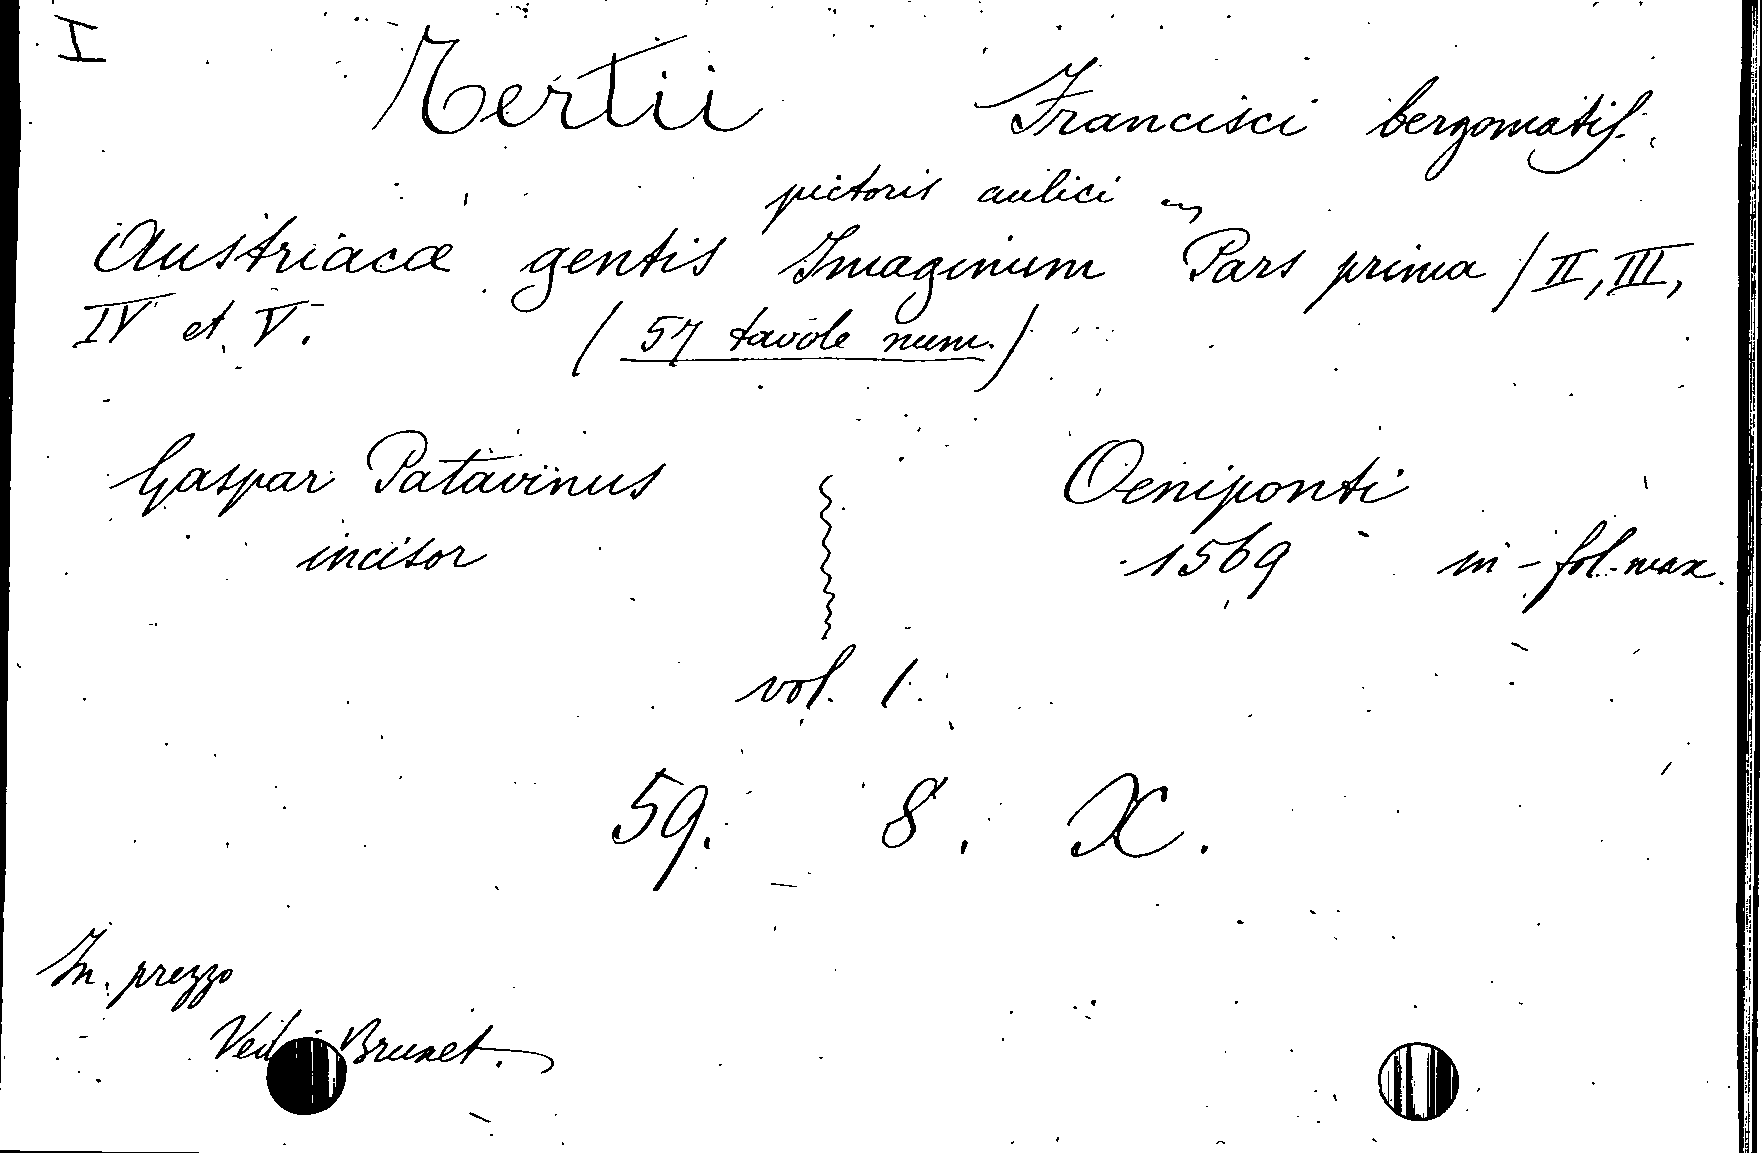 I
Tertii Francisci bergomatis.
pictoris aulici
Austriacæ gentis Imaginum Pars prima / II, III,
IV et V. ( 57 tavole num. )
Gaspar Patavinus Oeniponti
incisor 1569 in-fol. max.
vol. 1.
59. 8. X.
In. prezzo
Vedi Brunet.